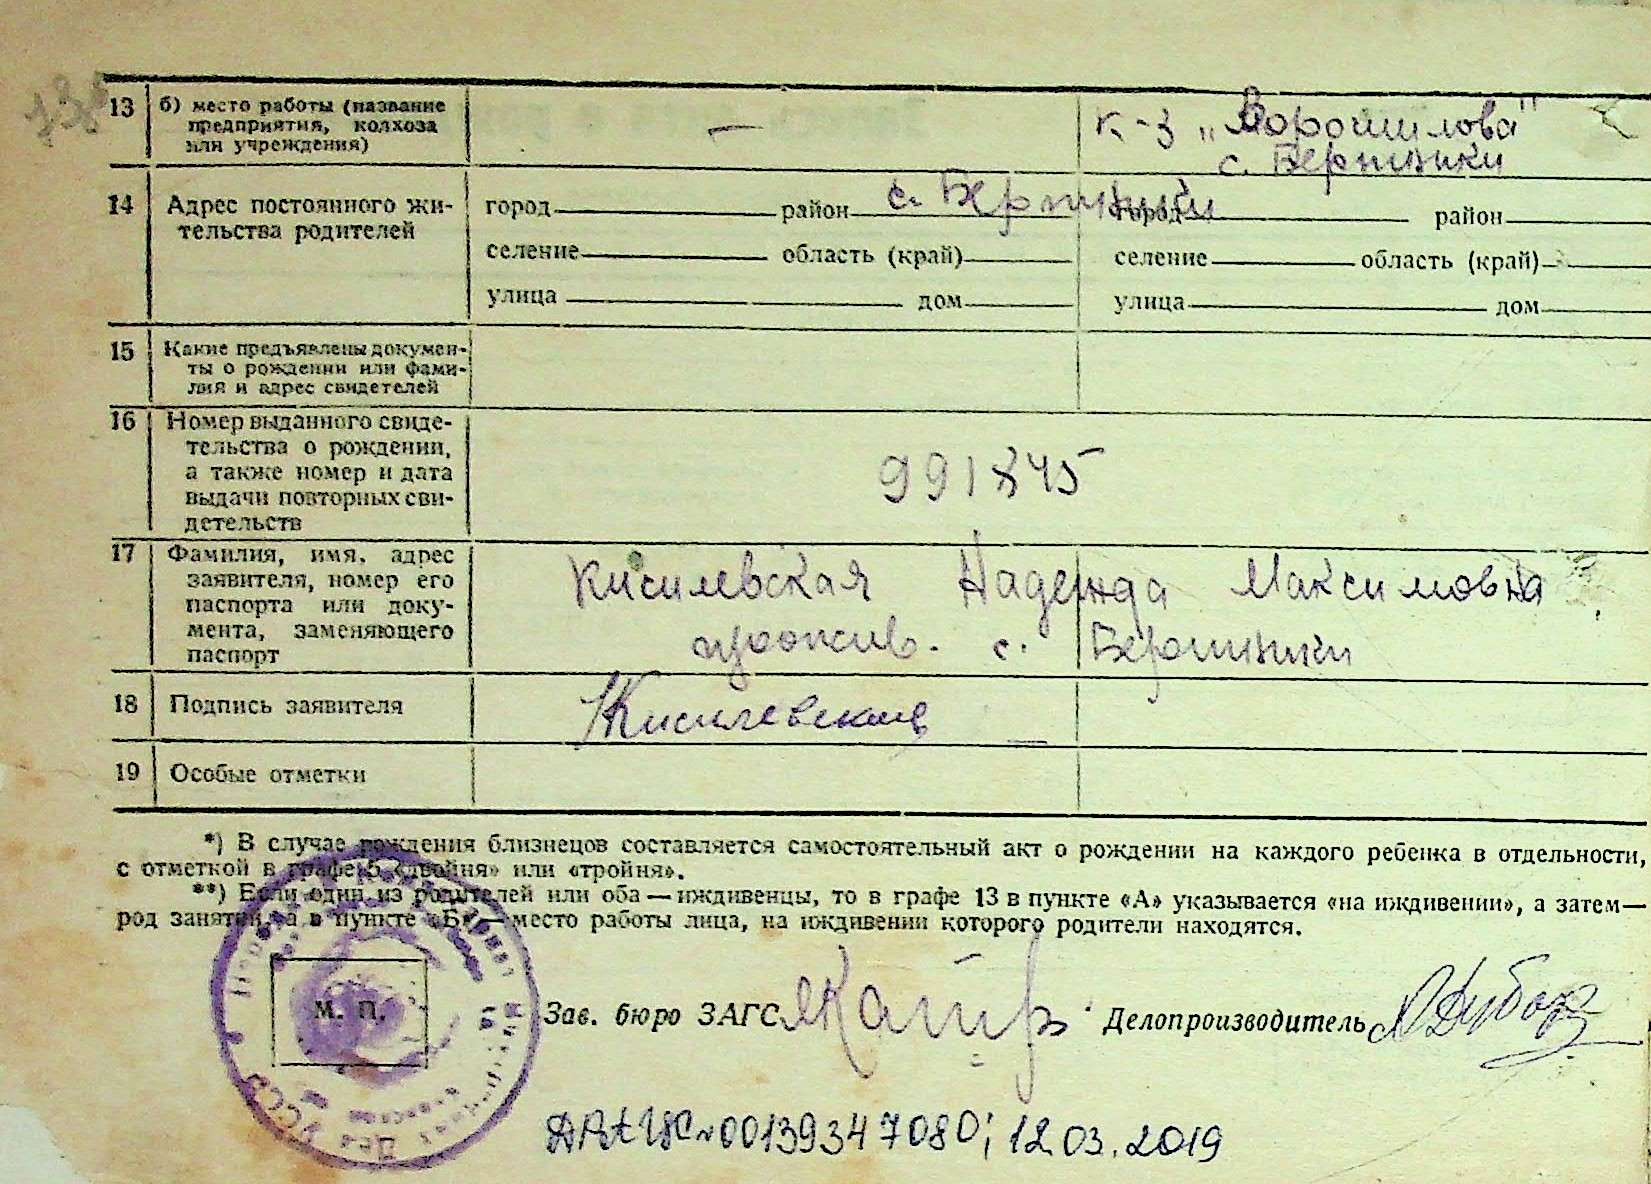 13 б) место работы (название
предприятия, колхоза
или учреждения)
—
к-з „Ворошилова"
с.
14 Адрес постоянного жи-
тельства родителей
город район с. город район
селение область (край) селение область (край)
улица дом улица дом
15 Какие предъявлены докумен-
ты о рождении или фами-
лия и адрес свидетелей
16 Номер выданного свиде-
тельства о рождении,
а также номер и дата
выдачи повторных сви-
детельств
991845
17 Фамилия, имя, адрес
заявителя, номер его
паспорта или доку-
мента, заменяющего
паспорт
Кисилевская Надежда Максимовна
прожив. с.
18 Подпись заявителя
Кисилевская
19 Особые отметки
*) В случае рождения близнецов составляется самостоятельный акт о рождении на каждого ребенка в отдельности,
с отметкой в графе 5 «двойня» или «тройня».
**) Если один из родителей или оба — иждивенцы, то в графе 13 в пункте «А» указывается «на иждивении», а затем —
род занятий, а в пункте «Б» — место работы лица, на иждивении которого родители находятся.
М. П.
Зав. бюро ЗАГС Делопроизводитель
УССР
Дел
00139347080; 12.03.2019